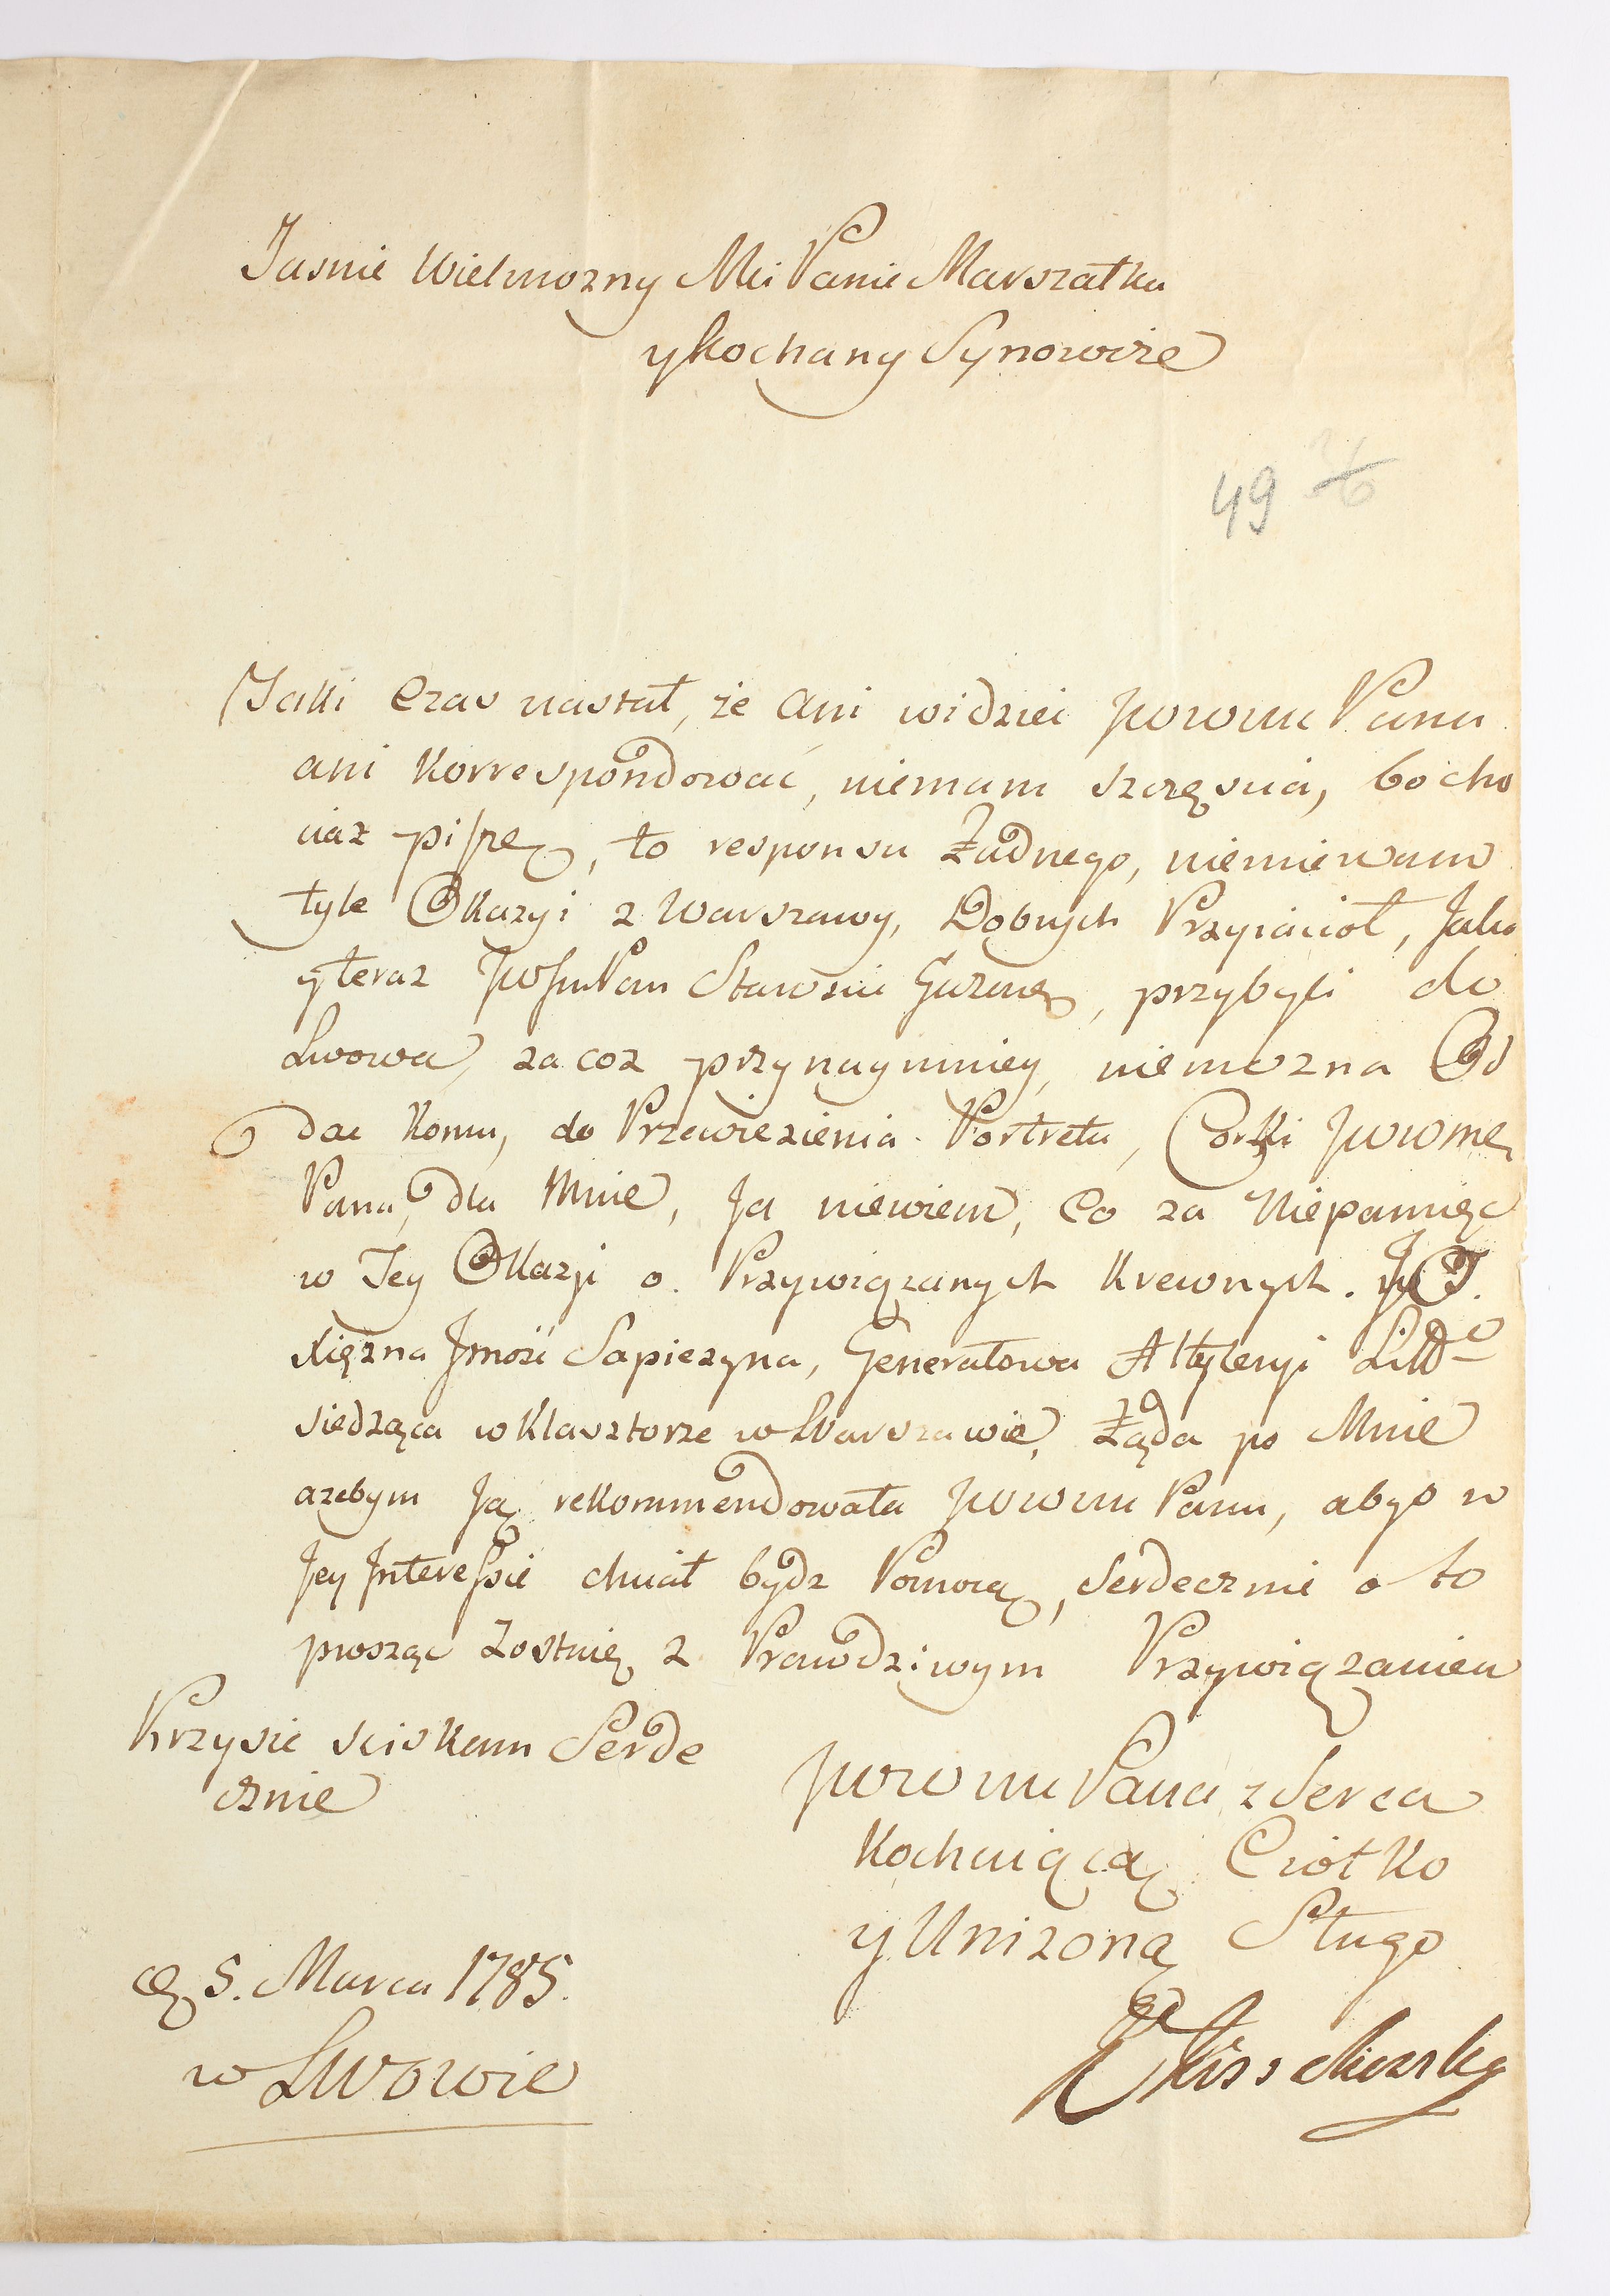 Jasnie Wielmozny Mci Panie Marszałku
y Kochany Synowcze
49
Jakki Czas nastał, że Ani widziec JWWM Pana
ani Korrespondować, niemam szczęscia, bo cho
ciaz piszę, to responsu Żadnego, niemiewam
tyle Okazyi z Warszawy, Dobrych Przyiacioł, Jako
y teraz Starosci przybyli do
Lwowa, za coz przynaymniey, niemozna Od
dac Komu, do Przewiezienia Portretu, Corki JWWM
Pana, dla Mnie, Ja niewiem, Co za Niepamięc
w Tey Okazji o Przywiązanych Krewnych. JO.
Xięzna Jmość Sapiezyna, Generałowa Attyleryi Litto
siedząca w Klasztorze w Warszawie, Żąda po Mnie
azebym Ją rekommendowała JWWM Panu, abyś w
Jey Interessie chciał bydz Pomocą, Serdecznie o to
prosząc Zostaię z Prawdziwym Przywiązaniem
Krzysie sciskam Serde
cznie
JWWM Pana z Serca
Kochaiącą Ciotko
y Unizoną Sługo
5. Marca 1785.
w Lwowie